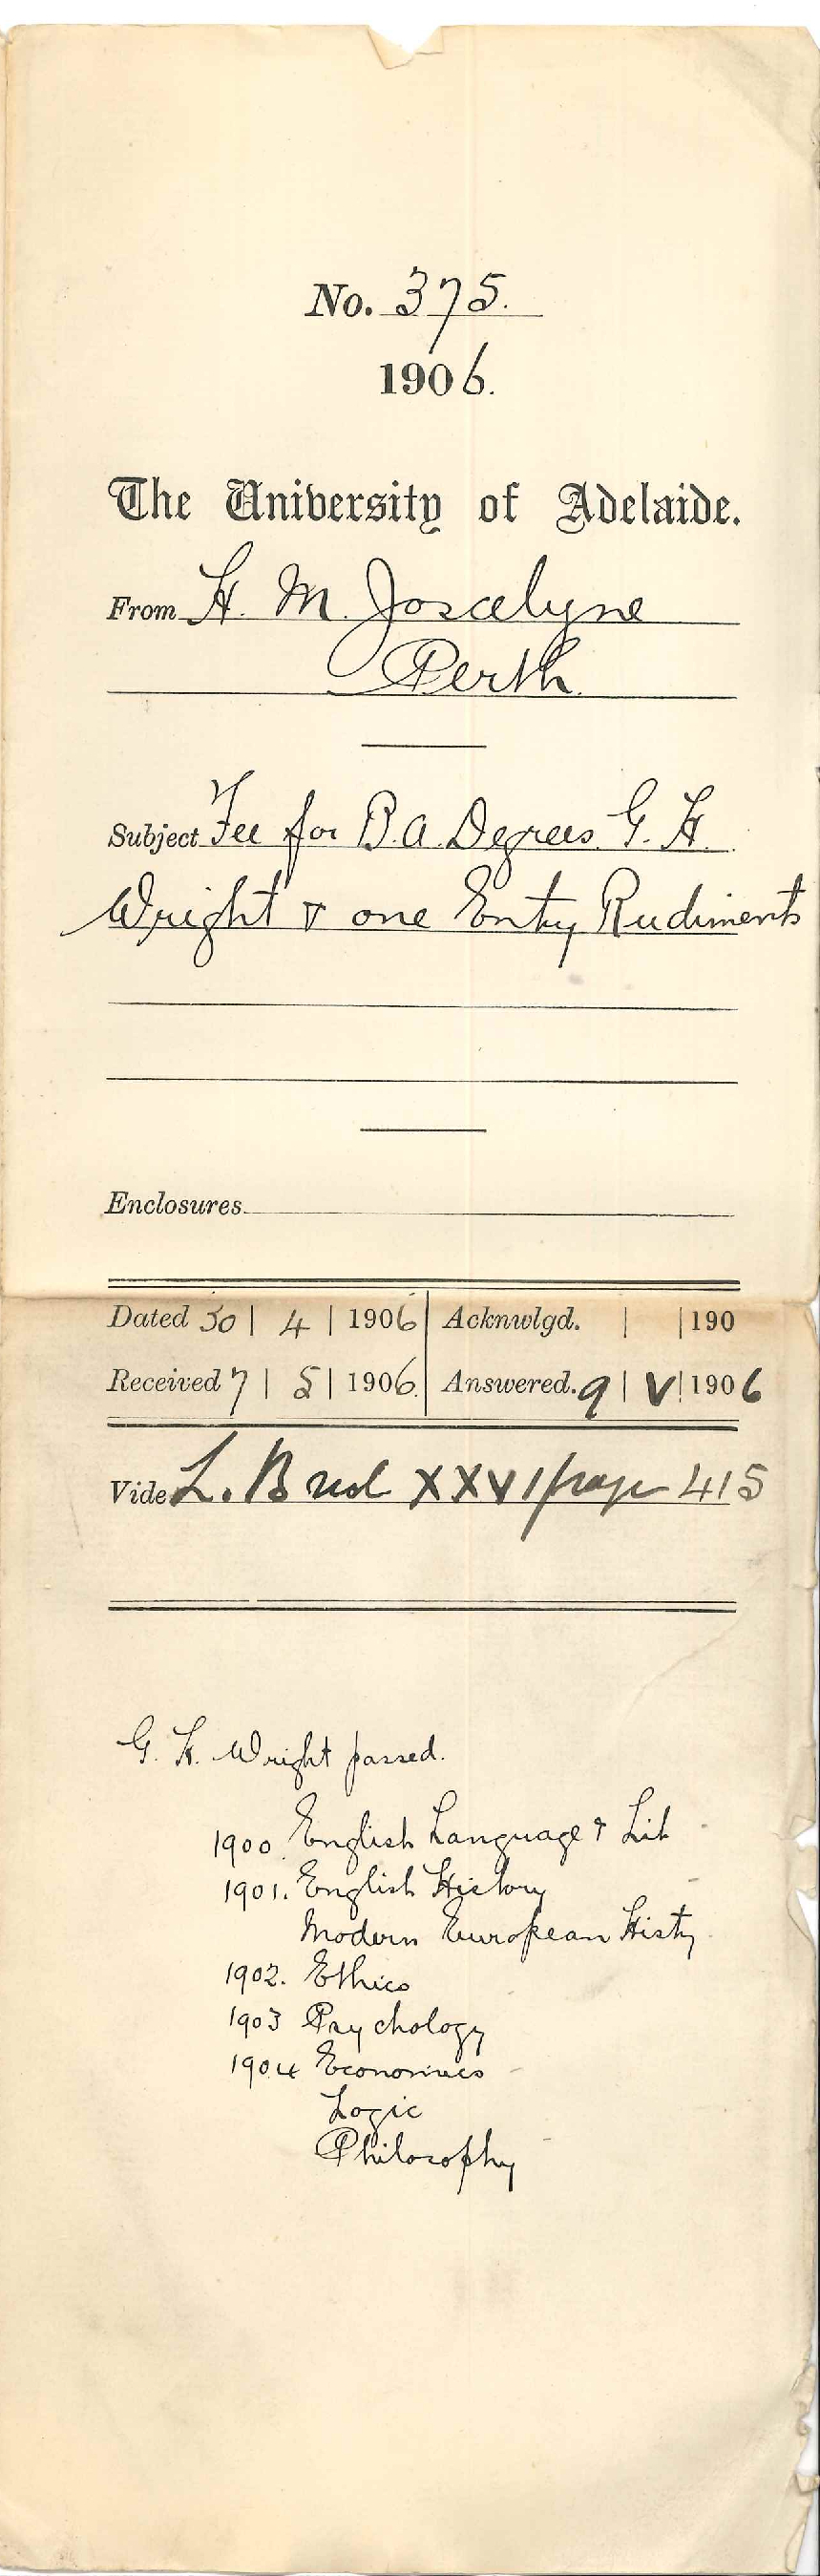 No. 375.
1906.
The University of Adelaide.
From H. M. Joscelyne
Perth
Subject Fee for B.A. Degrees G. H.
Wright & one Entry Rudiments
Enclosures
Dated 30 | 4 | 1906 Acknwlgd. | | 190
Received 7 | 5 | 1906. Answered. 9 | V | 1906
Vide L. B vol XXVI page 415
G. H. Wright passed.
1900 English Language & Lit
1901. English History
Modern European Histy
1902. Ethics
1903 Psychology
1904 Economics
Logic
Philosophy